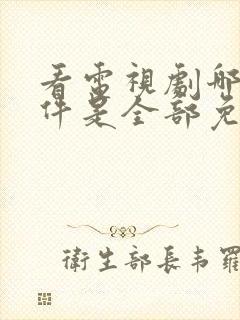 看電視劇哪
件是全部免
衛生部長韋羅